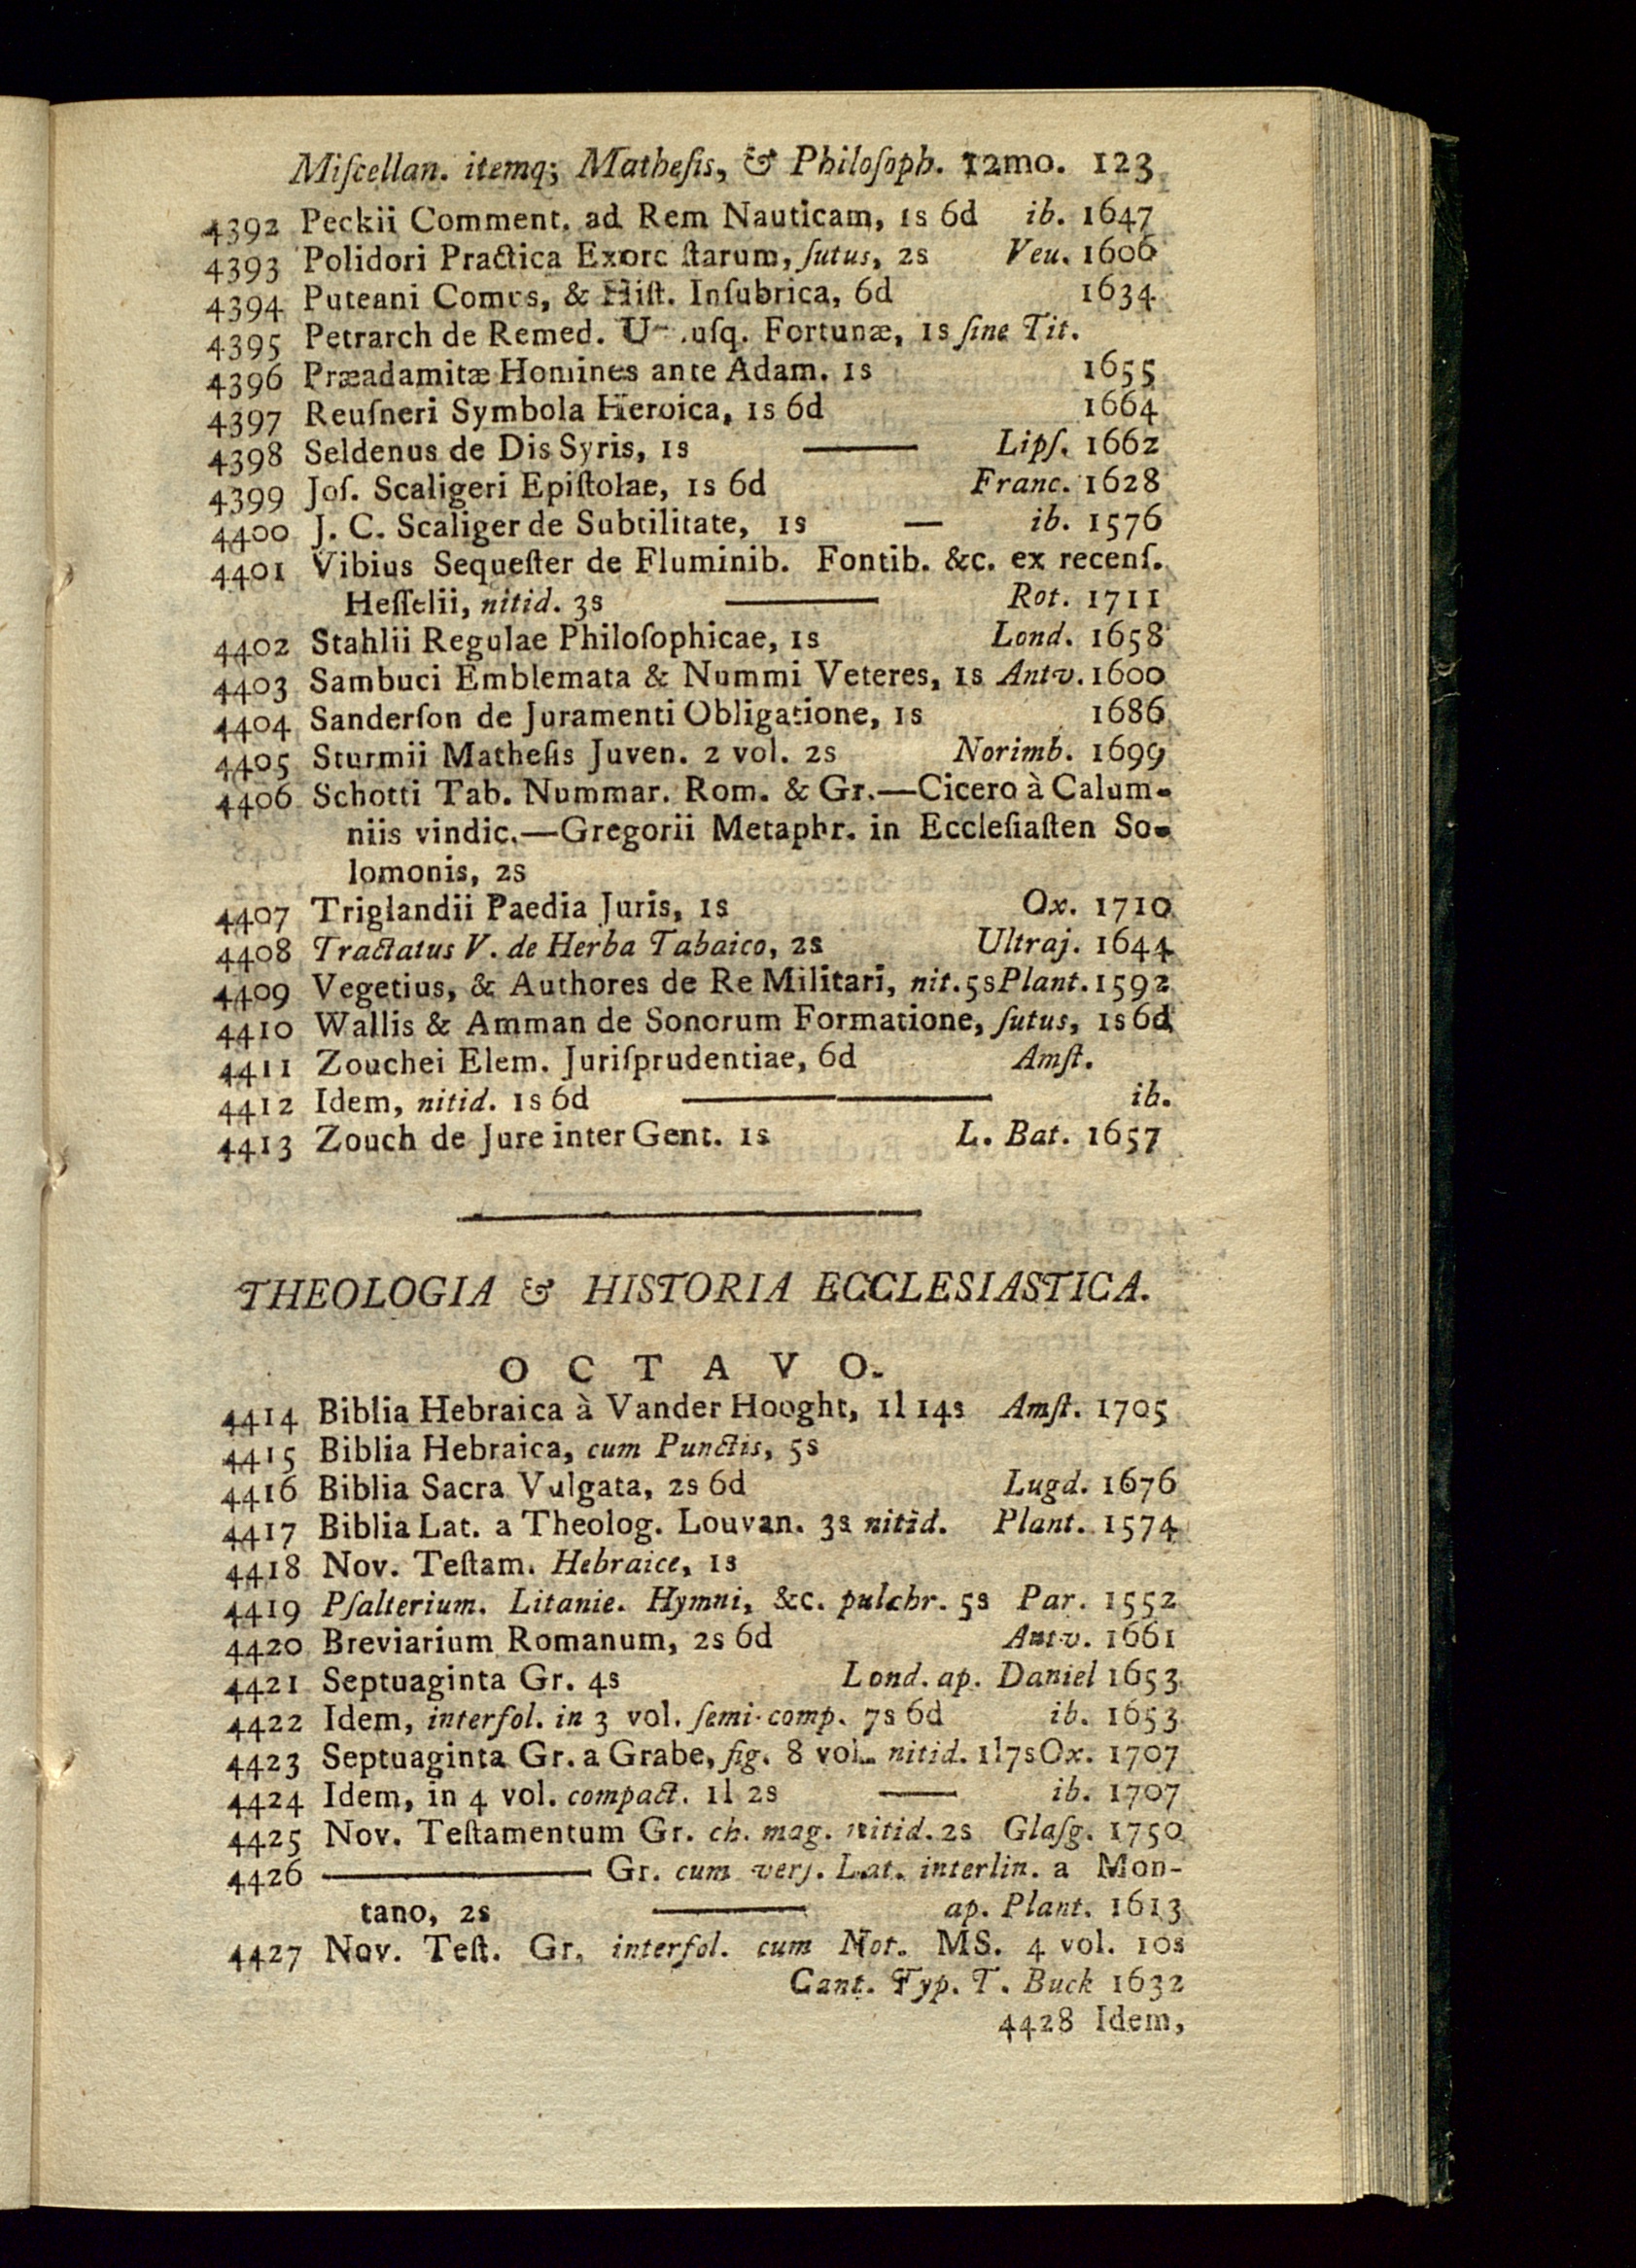 Miſcellan. itemq; Matheſis, & Philoſoph. 12mo. 123
4392 Peckii Comment. ad Rem Nauticam, 1s 6d ib. 1647
4393 Polidori Practica Exorc ſtarum, ſutus, 2s Veu. 1606
4394 Puteani Comus, & Hiſt. Inſubrica, 6d 1634
4395 Petrarch de Remed. U  uſq. Fortunæ, 1s ſine Tit.
4396 Præadamitæ Homines ante Adam. 1s 1655
4397 Reuſneri Symbola Heroica, 1s 6d 1664
4398 Seldenus de Dis Syris, 1s —— Lipſ. 1662
4399 Joſ. Scaligeri Epiſtolae, 1s 6d Franc. 1628
4400 J. C. Scaliger de Subtilitate, 1s — ib. 1576
4401 Vibius Sequeſter de Fluminib. Fontib. &c. ex recenſ.
Heſſelii, nitid. 3s —— Rot. 1711
4402 Stahlii Regulae Philoſophicae, 1s Lond. 1658
4403 Sambuci Emblemata & Nummi Veteres, 1s Antv. 1600
4404 Sanderſon de Juramenti Obligatione, 1s 1686
4405 Sturmii Matheſis Juven. 2 vol. 2s Norimb. 1699
4406 Schotti Tab. Nummar. Rom. & Gr.—Cicero à Calum-
niis vindic.—Gregorii Metaphr. in Eccleſiaſten So-
lomonis, 2s
4407 Triglandii Paedia Juris, 1s Ox. 1710
4408 Tractatus V. de Herba Tabaico, 2s Ultraj. 1644
4409 Vegetius, & Authores de Re Militari, nit. 5s Plant. 1592
4410 Wallis & Amman de Sonorum Formatione, ſutus, 1s 6d
4411 Zouchei Elem. Juriſprudentiae, 6d Amſt.
4412 Idem, nitid. 1s 6d —— ib.
4413 Zouch de Jure inter Gent. 1s L. Bat. 1657
THEOLOGIA & HISTORIA ECCLESIASTICA.
OCTAVO.
4414 Biblia Hebraica à Vander Hooght, 1l 14s Amſt. 1705
4415 Biblia Hebraica, cum Punctis, 5s
4416 Biblia Sacra Vulgata, 2s 6d Lugd. 1676
4417 Biblia Lat. a Theolog. Louvan. 3s nitid. Plant. 1574
4418 Nov. Teſtam. Hebraice, 1s
4419 Pſalterium. Litanie. Hymni, &c. pulchr. 5s Par. 1552
4420 Breviarium Romanum, 2s 6d Antv. 1661
4421 Septuaginta Gr. 4s Lond. ap. Daniel 1653
4422 Idem, interfol. in 3 vol. ſemi-comp. 7s 6d ib. 1653
4423 Septuaginta Gr. a Grabe, fig. 8 vol. nitid. 1l 7s Ox. 1707
4424 Idem, in 4 vol. compact. 1l 2s —— ib. 1707
4425 Nov. Teſtamentum Gr. ch. mag. nitid. 2s Glaſg. 1750
4426 —— Gr. cum verſ. Lat. interlin. a Mon-
tano, 2s —— ap. Plant. 1613
4427 Nov. Teſt. Gr. interfol. cum Not. MS. 4 vol. 10s
Cant. Typ. T. Buck 1632
4428 Idem,